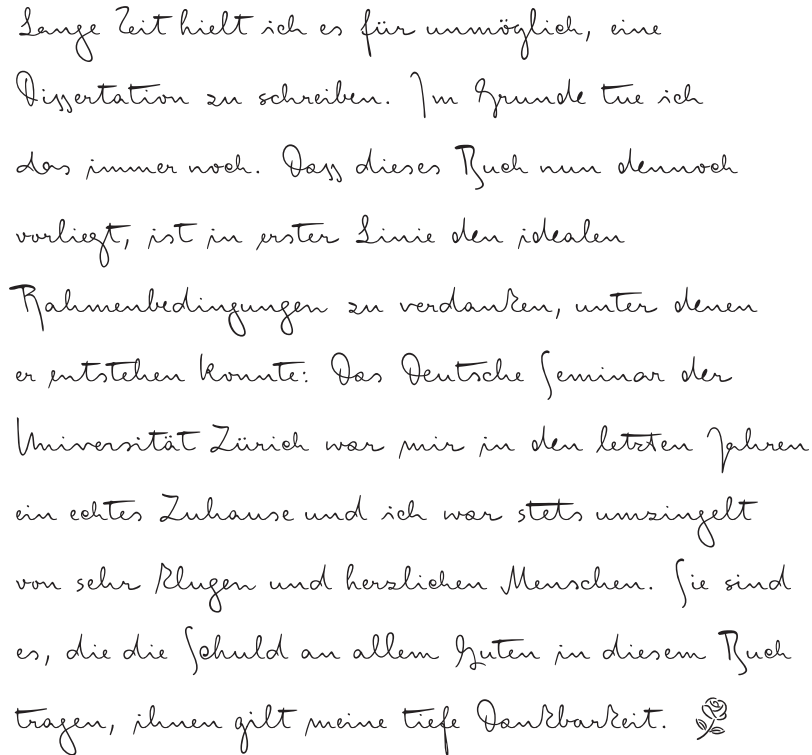 Lange Zeit hielt ich es für unmöglich, eine
Dissertation zu schreiben. Im Grunde tue ich
das immer noch. Dass dieses Buch nun dennoch
vorliegt, ist in erster Linie den idealen
Rahmenbedingungen zu verdanken, unter denen
er entstehen konnte: Das Deutsche Seminar der
Universität Zürich war mir in den letzten Jahren
ein echtes Zuhause und ich war stets umzingelt
von sehr klugen und herzlichen Menschen. Sie sind
es, die die Schuld an allem Guten in diesem Buch
tragen, ihnen gilt meine tiefe Dankbarkeit.